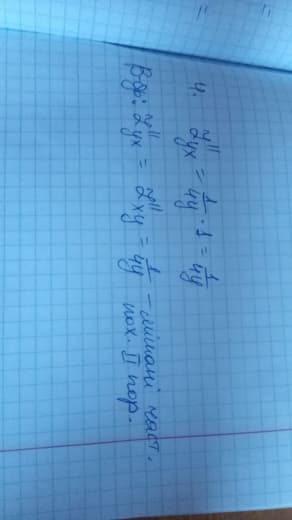 4. z''yx = 1/4y · 1 = 1/4y
Від: z''yx = z''xy = 1/4y – мішані част.
пох. II пор.